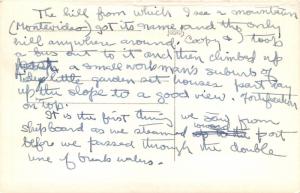 The hill from which I see a mountain
(Montevideo) got its name and the only
hill anywhere around. Coopy & I took
a bus out to it and then climbed up
a small workman's suburb of
little garden set houses part way
up the slope to a good view. Fortification
on top.
It is the first thing we saw from
shipboard as we steamed into port
before we passed through the double
line of break waters.